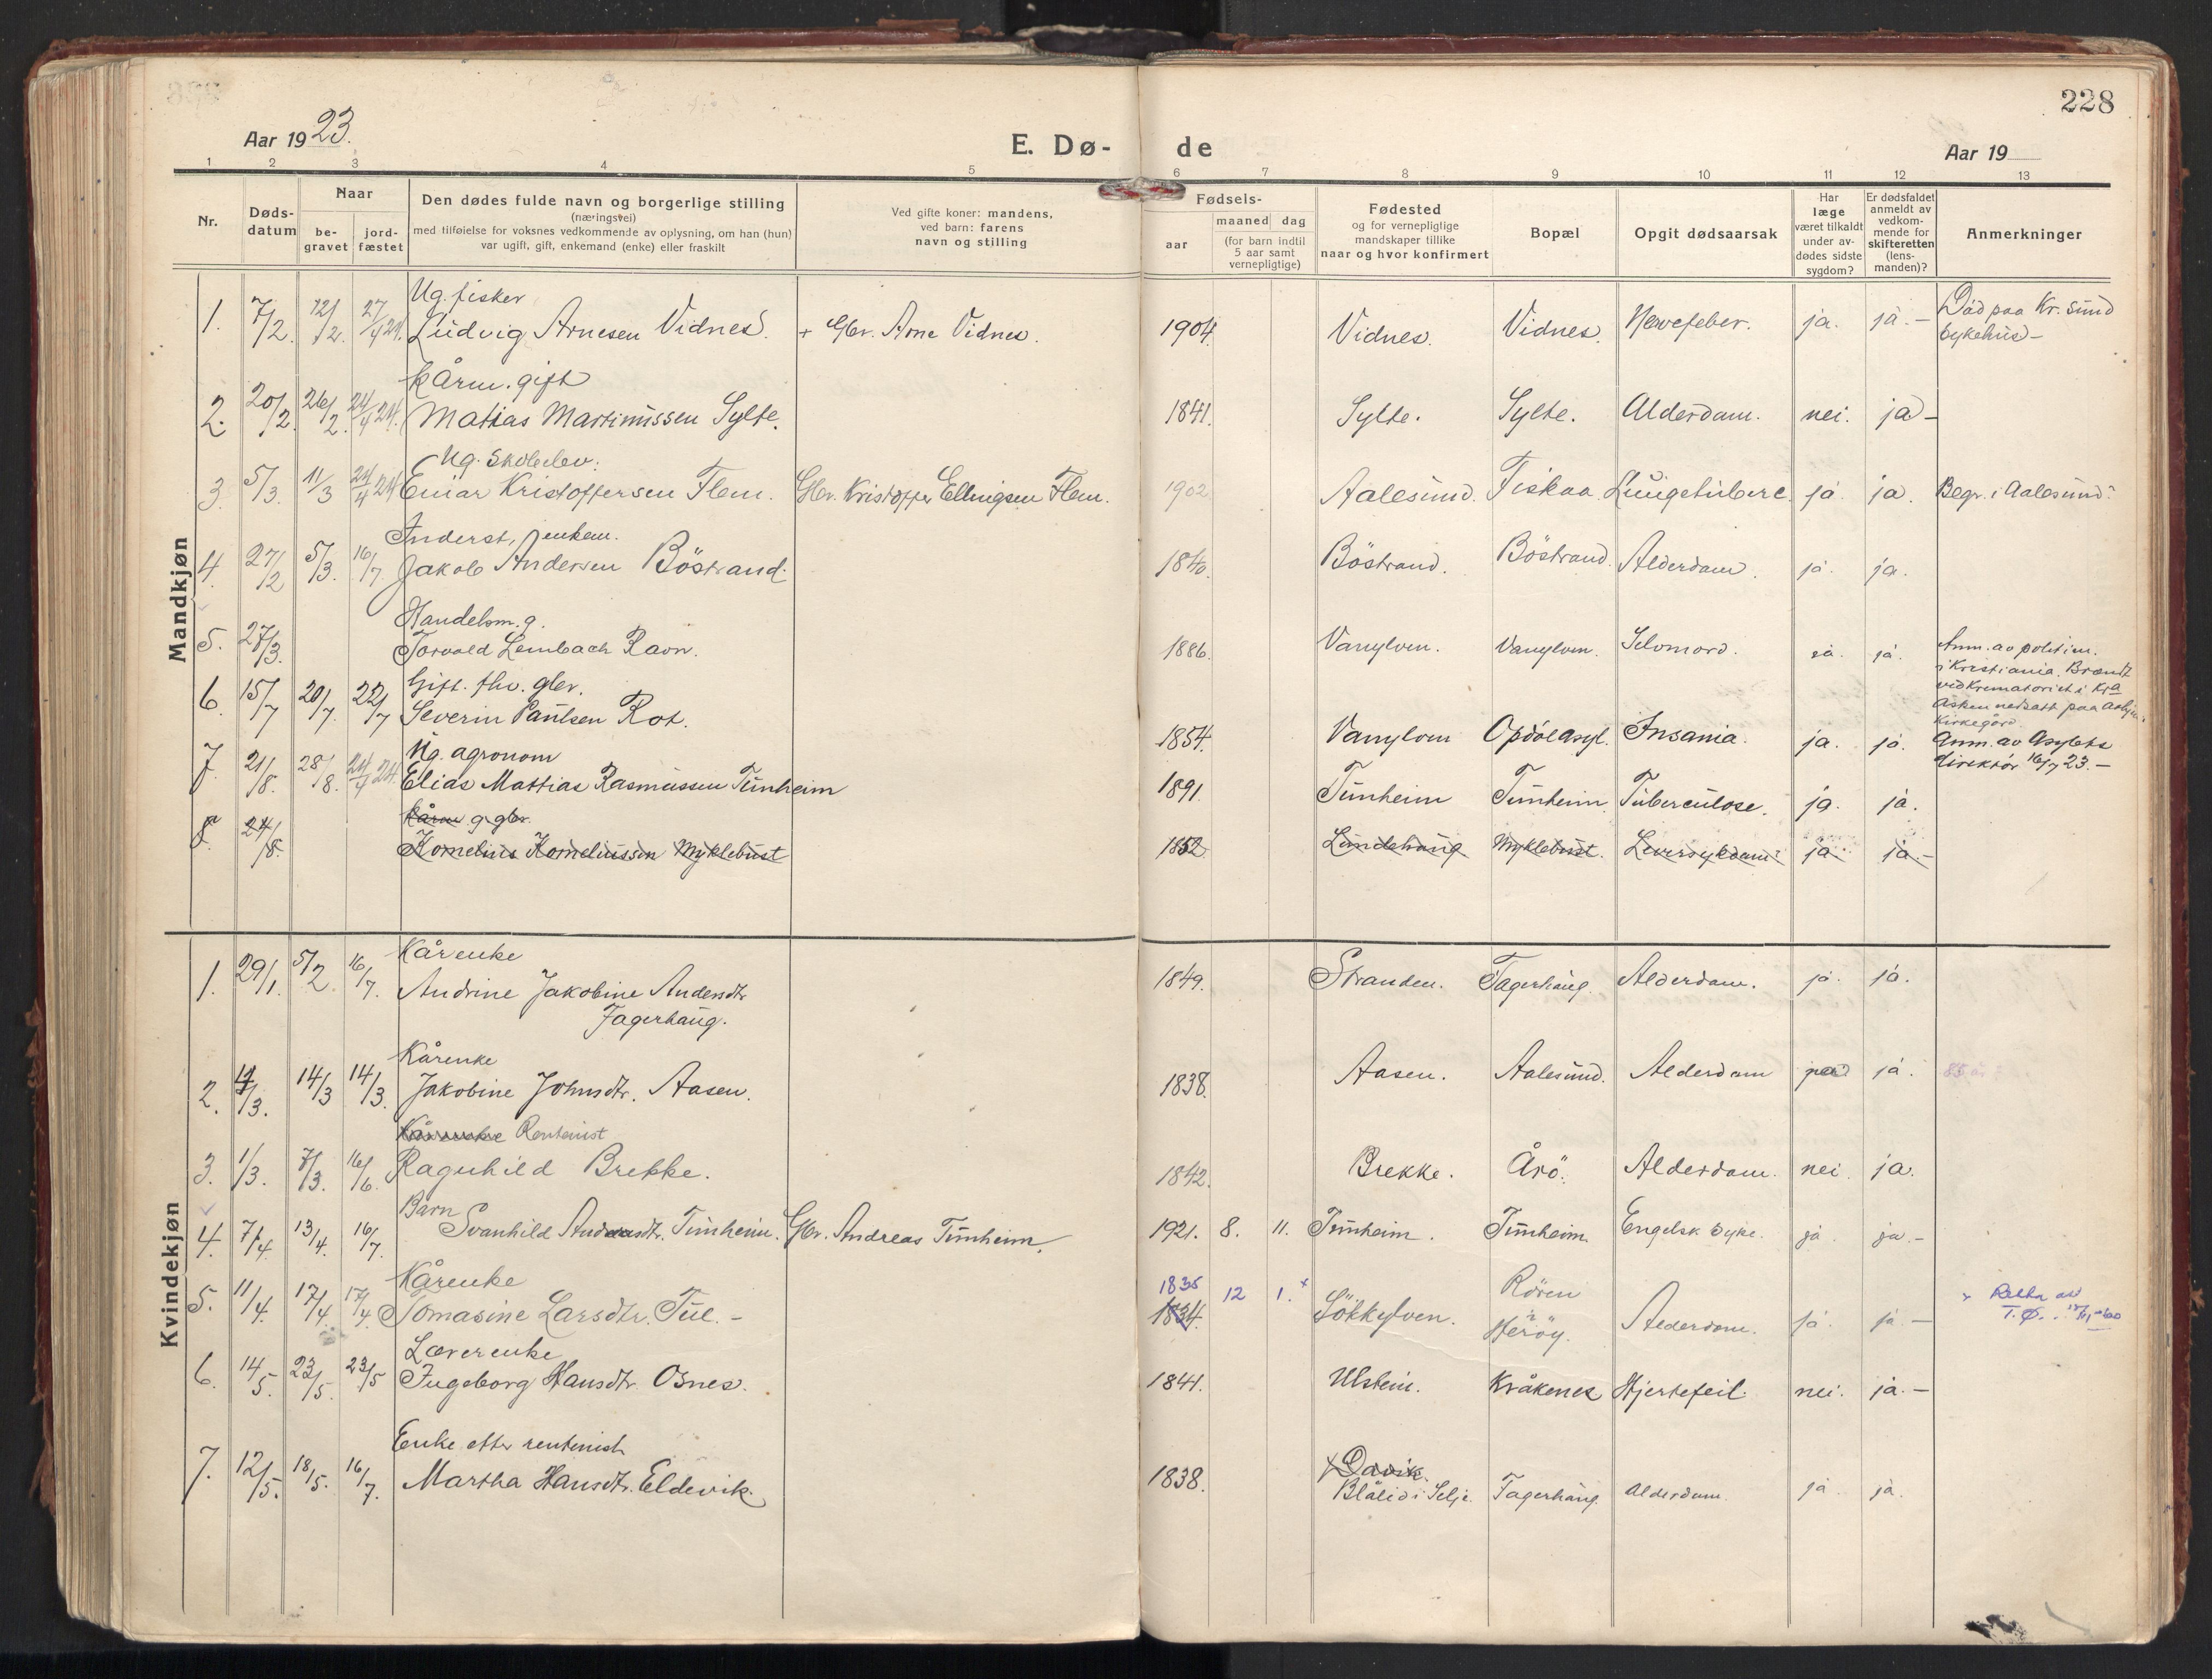 228
Aar 1923.
E. Dø- de
Aar 19
1 2 3 4 5 6 7 8 9 10 11 12 13
Nr.
Døds-
datum
Naar
be-
gravet
jord-
fæstet
Den dødes fulde navn og borgerlige stilling
(næringsvei)
med tilføielse for voksnes vedkommende av oplysning, om han (hun)
var ugift, gift, enkemand (enke) eller fraskilt
Ved gifte koner: mandens,
ved barn: farens
navn og stilling
Fødsels-
aar
maaned dag
(for barn indtil
5 aar samt
vernepligtige)
Fødested
og for vernepligtige
mandskaper tillike
naar og hvor konfirmert
Bopæl
Opgit dødsaarsak
Har
læge
været tilkaldt
under av-
dødes sidste
sygdom?
Er dødsfaldet
anmeldt av
vedkom-
mende for
skifteretten
(lens-
manden)?
Anmerkninger
Mandkjøn
Ug. fisker
1. 7/2. 12/2. 27/4 24. Ludvig Arnesen Vidnes. + Gbr. Arne Vidnes. 1904. Vidnes. Vidnes. Nervefeber. ja. ja. – Død paa Kr.sund
sykehus –
Kårm. gift
2. 20/2. 26/2. 24/4 24. Matias Martinussen Sylte. 1841. Sylte. Sylte. Alderdom. nei. ja –
Ug. Skoleelev.
3. 5/3. 11/3 24/4 24 Einar Kristoffersen Flem. Gbr. Kristoffer Ellingsen Flem. 1902. Aalesund. Fiskaa. Lungetuberc. ja. ja. Begr. i Aalesund.
Inderst, enkem.
4. 27/2 5/3. 16/7. Jakob Andersen Böstrand. 1840. Böstrand. Böstrand. Alderdom. ja. ja.
Handelsm. g.
5. 27/3. Torvald Lembach Ravn. 1886. Vanylven. Vanylven. Selvmord. ja. ja. Anm. av politim.
i Kristiania. Brændt
ved Krematoriet i Kra
Asken nedsatt paa
Kirkegård
Gift. fhv. gbr.
6. 15/7 20/7. 22/7 Severin Paulsen Rot. 1854. Vanylven Opdöl asyl. Insania. ja. ja. Anm. av Asylets
direktør 16/7 23. –
Ug. agronom
7. 21/8. 28/8. 24/4 24. Elias Mattias Rasmussen Tunheim 1891. Tunheim Tunheim. Tuberculose. ja. ja.
Kårm g. gbr.
8. 24/8. Kornelius Korneliussen Myklebust 1852 Lindehaug Myklebust. Leversykdom ja ja –
Kvindekjøn
Kårenke
1. 29/1. 5/2 16/7. Andrine Jakobine Andersdtr 1849. Stranden. Fagerhaug. Alderdom. ja. ja.
Fagerhaug.
Kårenke
2. /3. 14/3 14/3. Jakobine Johnsdtr. Aasen. 1838. Aasen. Aalesund. Alderdom ja.
Kårenke Rentenist
3. 1/3. 7/3. 16/6. Ragnhild Brekke. 1842. Brekke. Årö. Alderdom. nei. ja.
Barn
4. 7/4. 13/4. 16/7. Svanhild Andreasdtr. Tunheim. Gbr. Andreas Tunheim. 1921. 8. 11. Tunheim. Tunheim. Engelsk syke. ja. ja. –
Kårenke
5. 11/4. 17/4. 17/4. Tomasine Larsdtr. Tue. – 1835 1834. 12 1. x Sökkelven. Rören
i Heröy. Alderdom. ja. ja. – x Retta av
T. Ø.
Lærerenke
6. 14/5. 23/5. 23/5 Ingeborg Hansdtr. Osnes. 1841. Ulstein. Kråkenes Hjertefeil. nei. ja. –
Enke etter rentenist
7. 12/5. 18/5. 16/7. Martha Hansdtr. Eldevik. 1838. Davik.
Blålid i Selje. Fagerhaug. Alderdom. ja. ja.